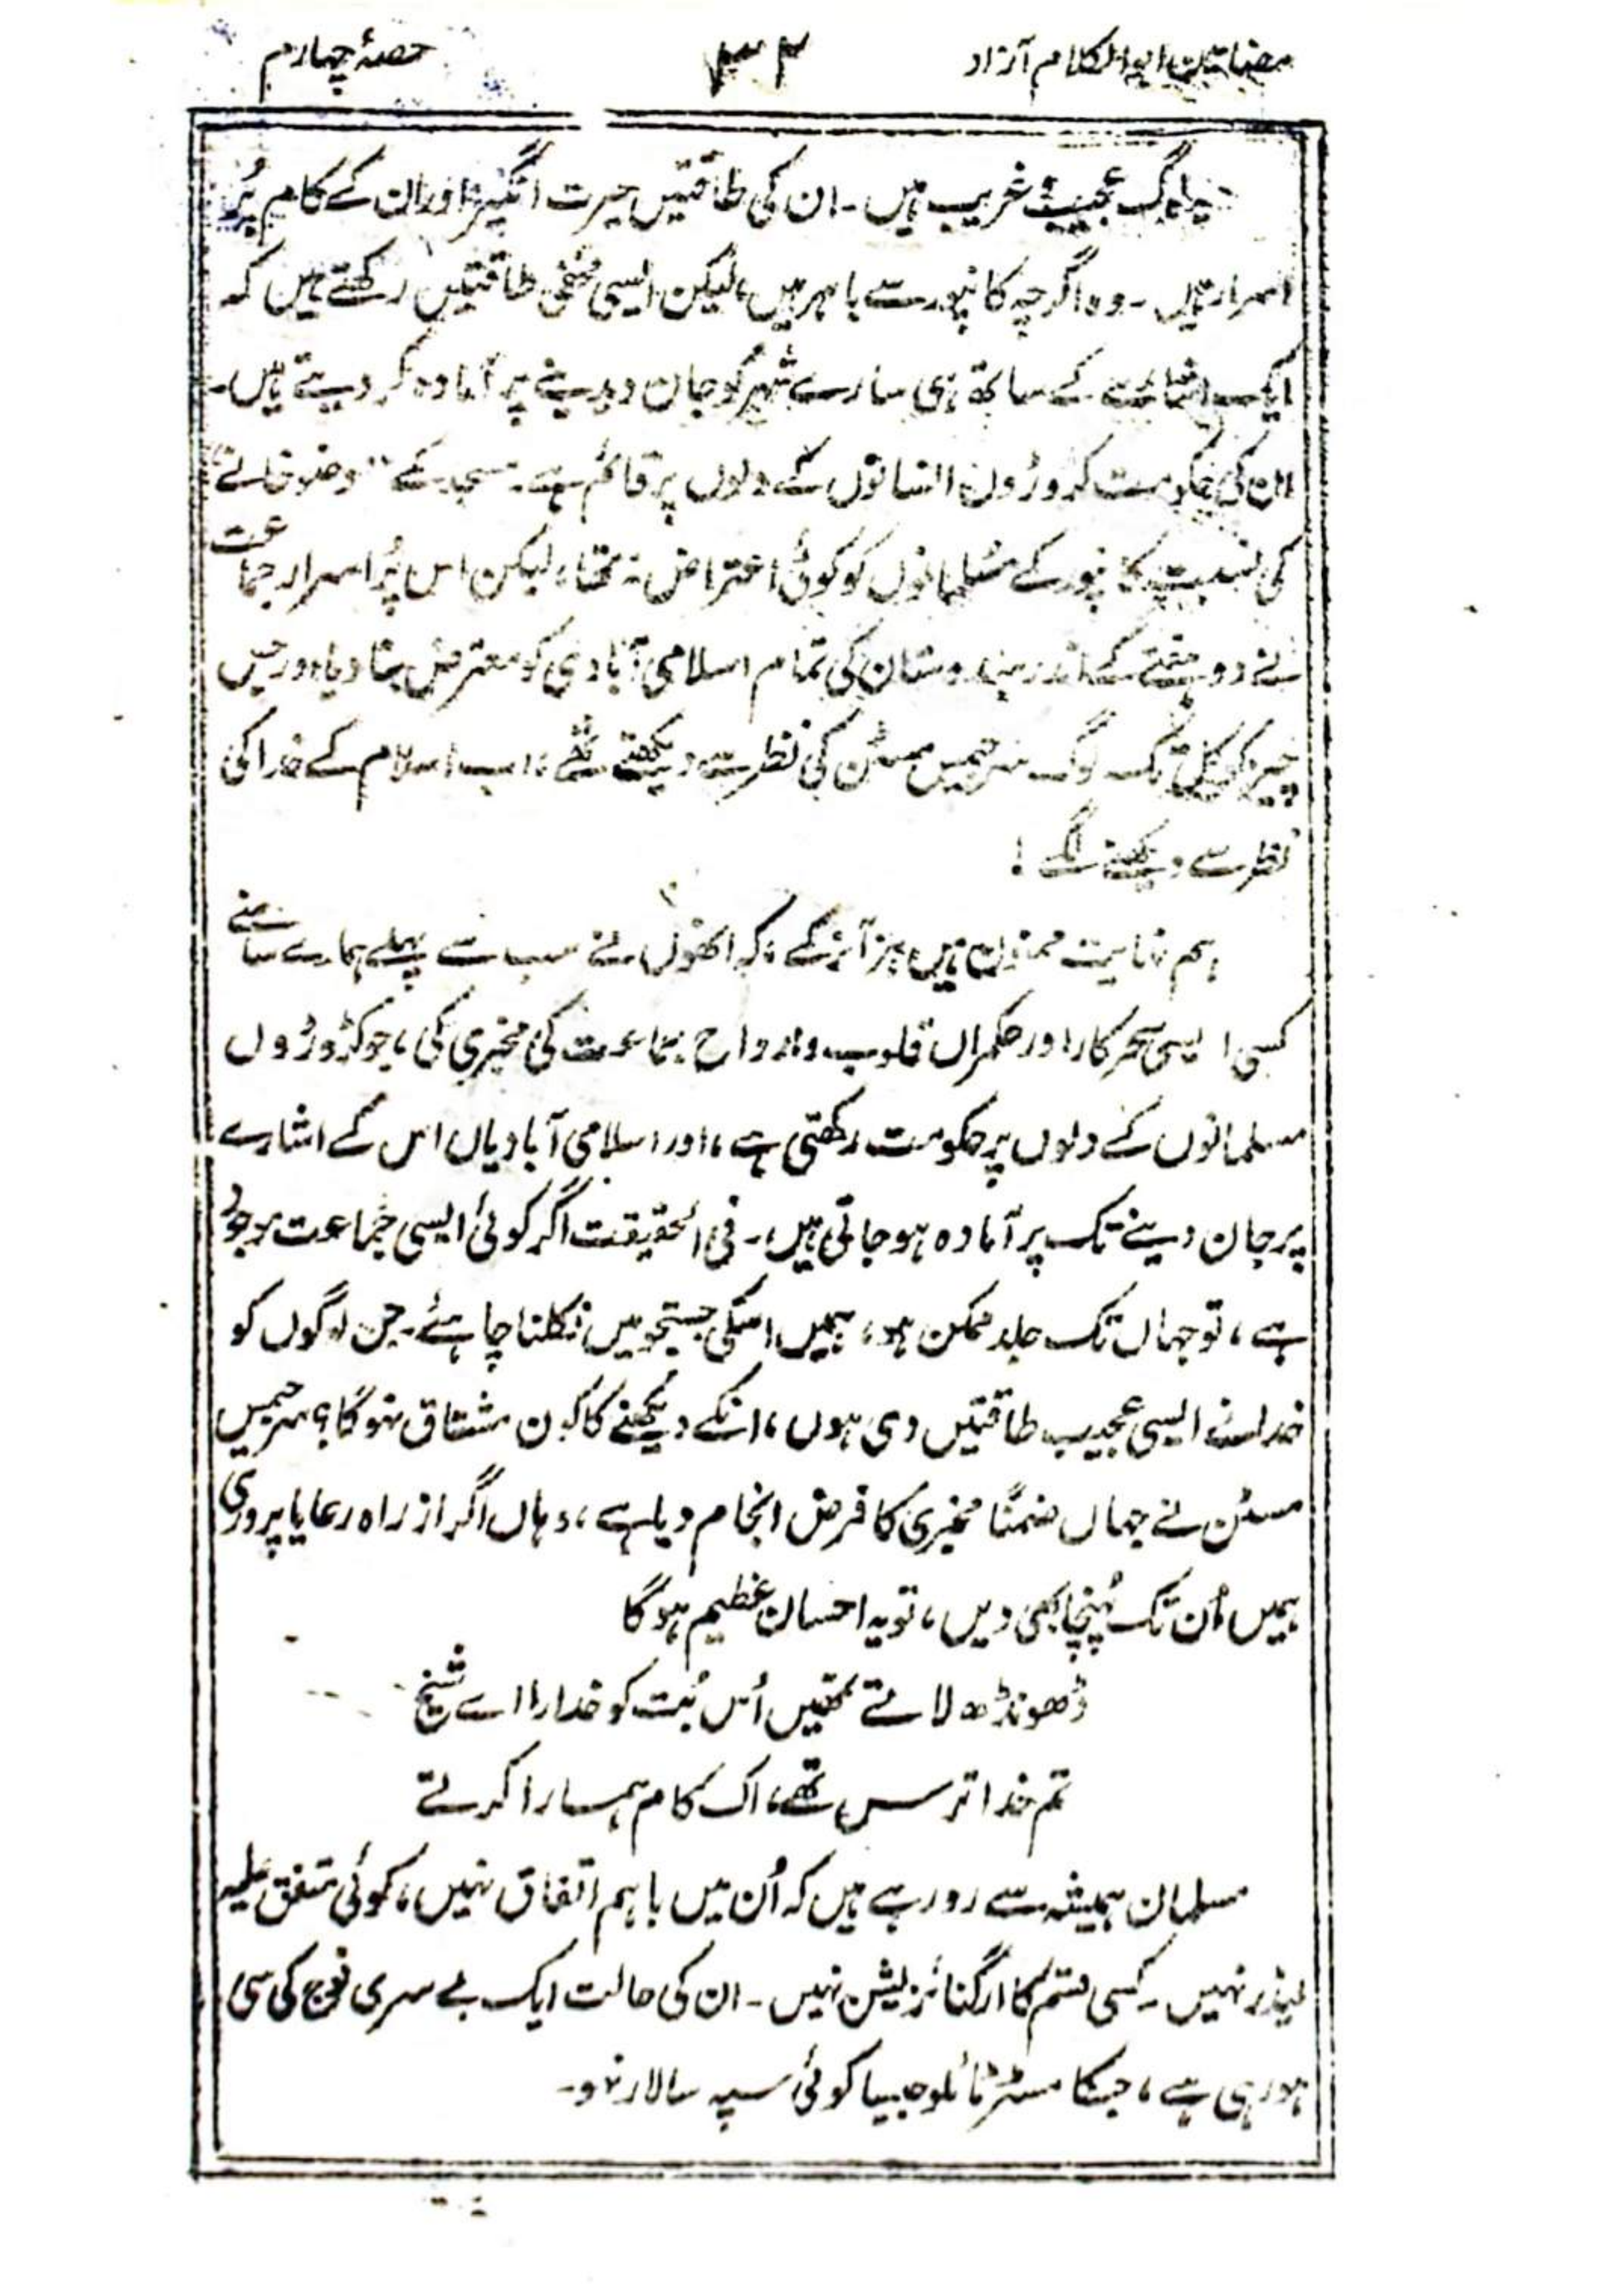 مضامین ابوالکلام آزاد ۳۲ حصۂ چہارم
یہ لوگ عجیب و غریب ہیں۔ ان کی طاقتیں حیرت انگیز اور ان کے کام پُر
اسرار ہیں۔ وہ اگرچہ کانپور سے باہر ہیں، لیکن ایسی مخفی طاقتیں رکھتے ہیں کہ
ایک اشارے کے ساتھ ہی سارے شہر کو جان دیدینے پر آمادہ کر دیتے ہیں۔
ان کی حکومت کروڑوں انسانوں کے دلوں پر قائم ہے۔ مسجد کے "وضو خانے"
کی نسبت کانپور کے مسلمانوں کو کوئی اعتراض نہ تھا، لیکن اس پُر اسرار جماعت
نے دو ہفتے کے اندر ہندوستان کی تمام اسلامی آبادی کو معترض بنا دیا، اور جس
چیز کو کل تک لوگ سر جیمس مسٹن کی نظر سے دیکھتے تھے، اب اسلام کے خدا کی
نظر سے دیکھنے لگے!
ہم نہایت ممنون ہیں ہز آنر کے، کہ انھوں نے سب سے پہلے ہمارے سامنے
کسی ایسی سحر کار اور حکمراں قلوب و ارواح جماعت کی مخبری کی، جو کڑوڑوں
مسلمانوں کے دلوں پر حکومت رکھتی ہے، اور اسلامی آبادیاں اس کے اشارے
پر جان دینے تک پر آمادہ ہو جاتی ہیں۔ فی الحقیقت اگر کوئی ایسی جماعت موجود
ہے، تو جہاں تک جلد ممکن ہو، ہمیں اسکی جستجو میں نکلنا چاہئے۔ جن لوگوں کو
خدا نے ایسی عجیب طاقتیں دی ہوں، انکے دیکھنے کا کون مشتاق نہوگا؟ سر جیمس
مسٹن نے جہاں ضمنًا مخبری کا فرض انجام دیا ہے، وہاں اگر از راہ رعایا پروری
ہمیں اُن تک پُہنچا بھی دیں، تو یہ احسان عظیم ہوگا
ڈھونڈھ لاتے تمھیں اُس بُت کو خدارا اے شیخ
تم خدا ترس تھے، اک کام ہمارا کرتے
مسلمان ہمیشہ سے رو رہے ہیں کہ اُن میں باہم اتفاق نہیں، کوئی متفق علیہ
لیڈر نہیں۔ کسی قسم کا ارگنائزیشن نہیں۔ ان کی حالت ایک بے سری فوج کی سی
ہو رہی ہے، جسکا مسٹر ٹائلو جیسا کوئی سپہ سالار نہو۔